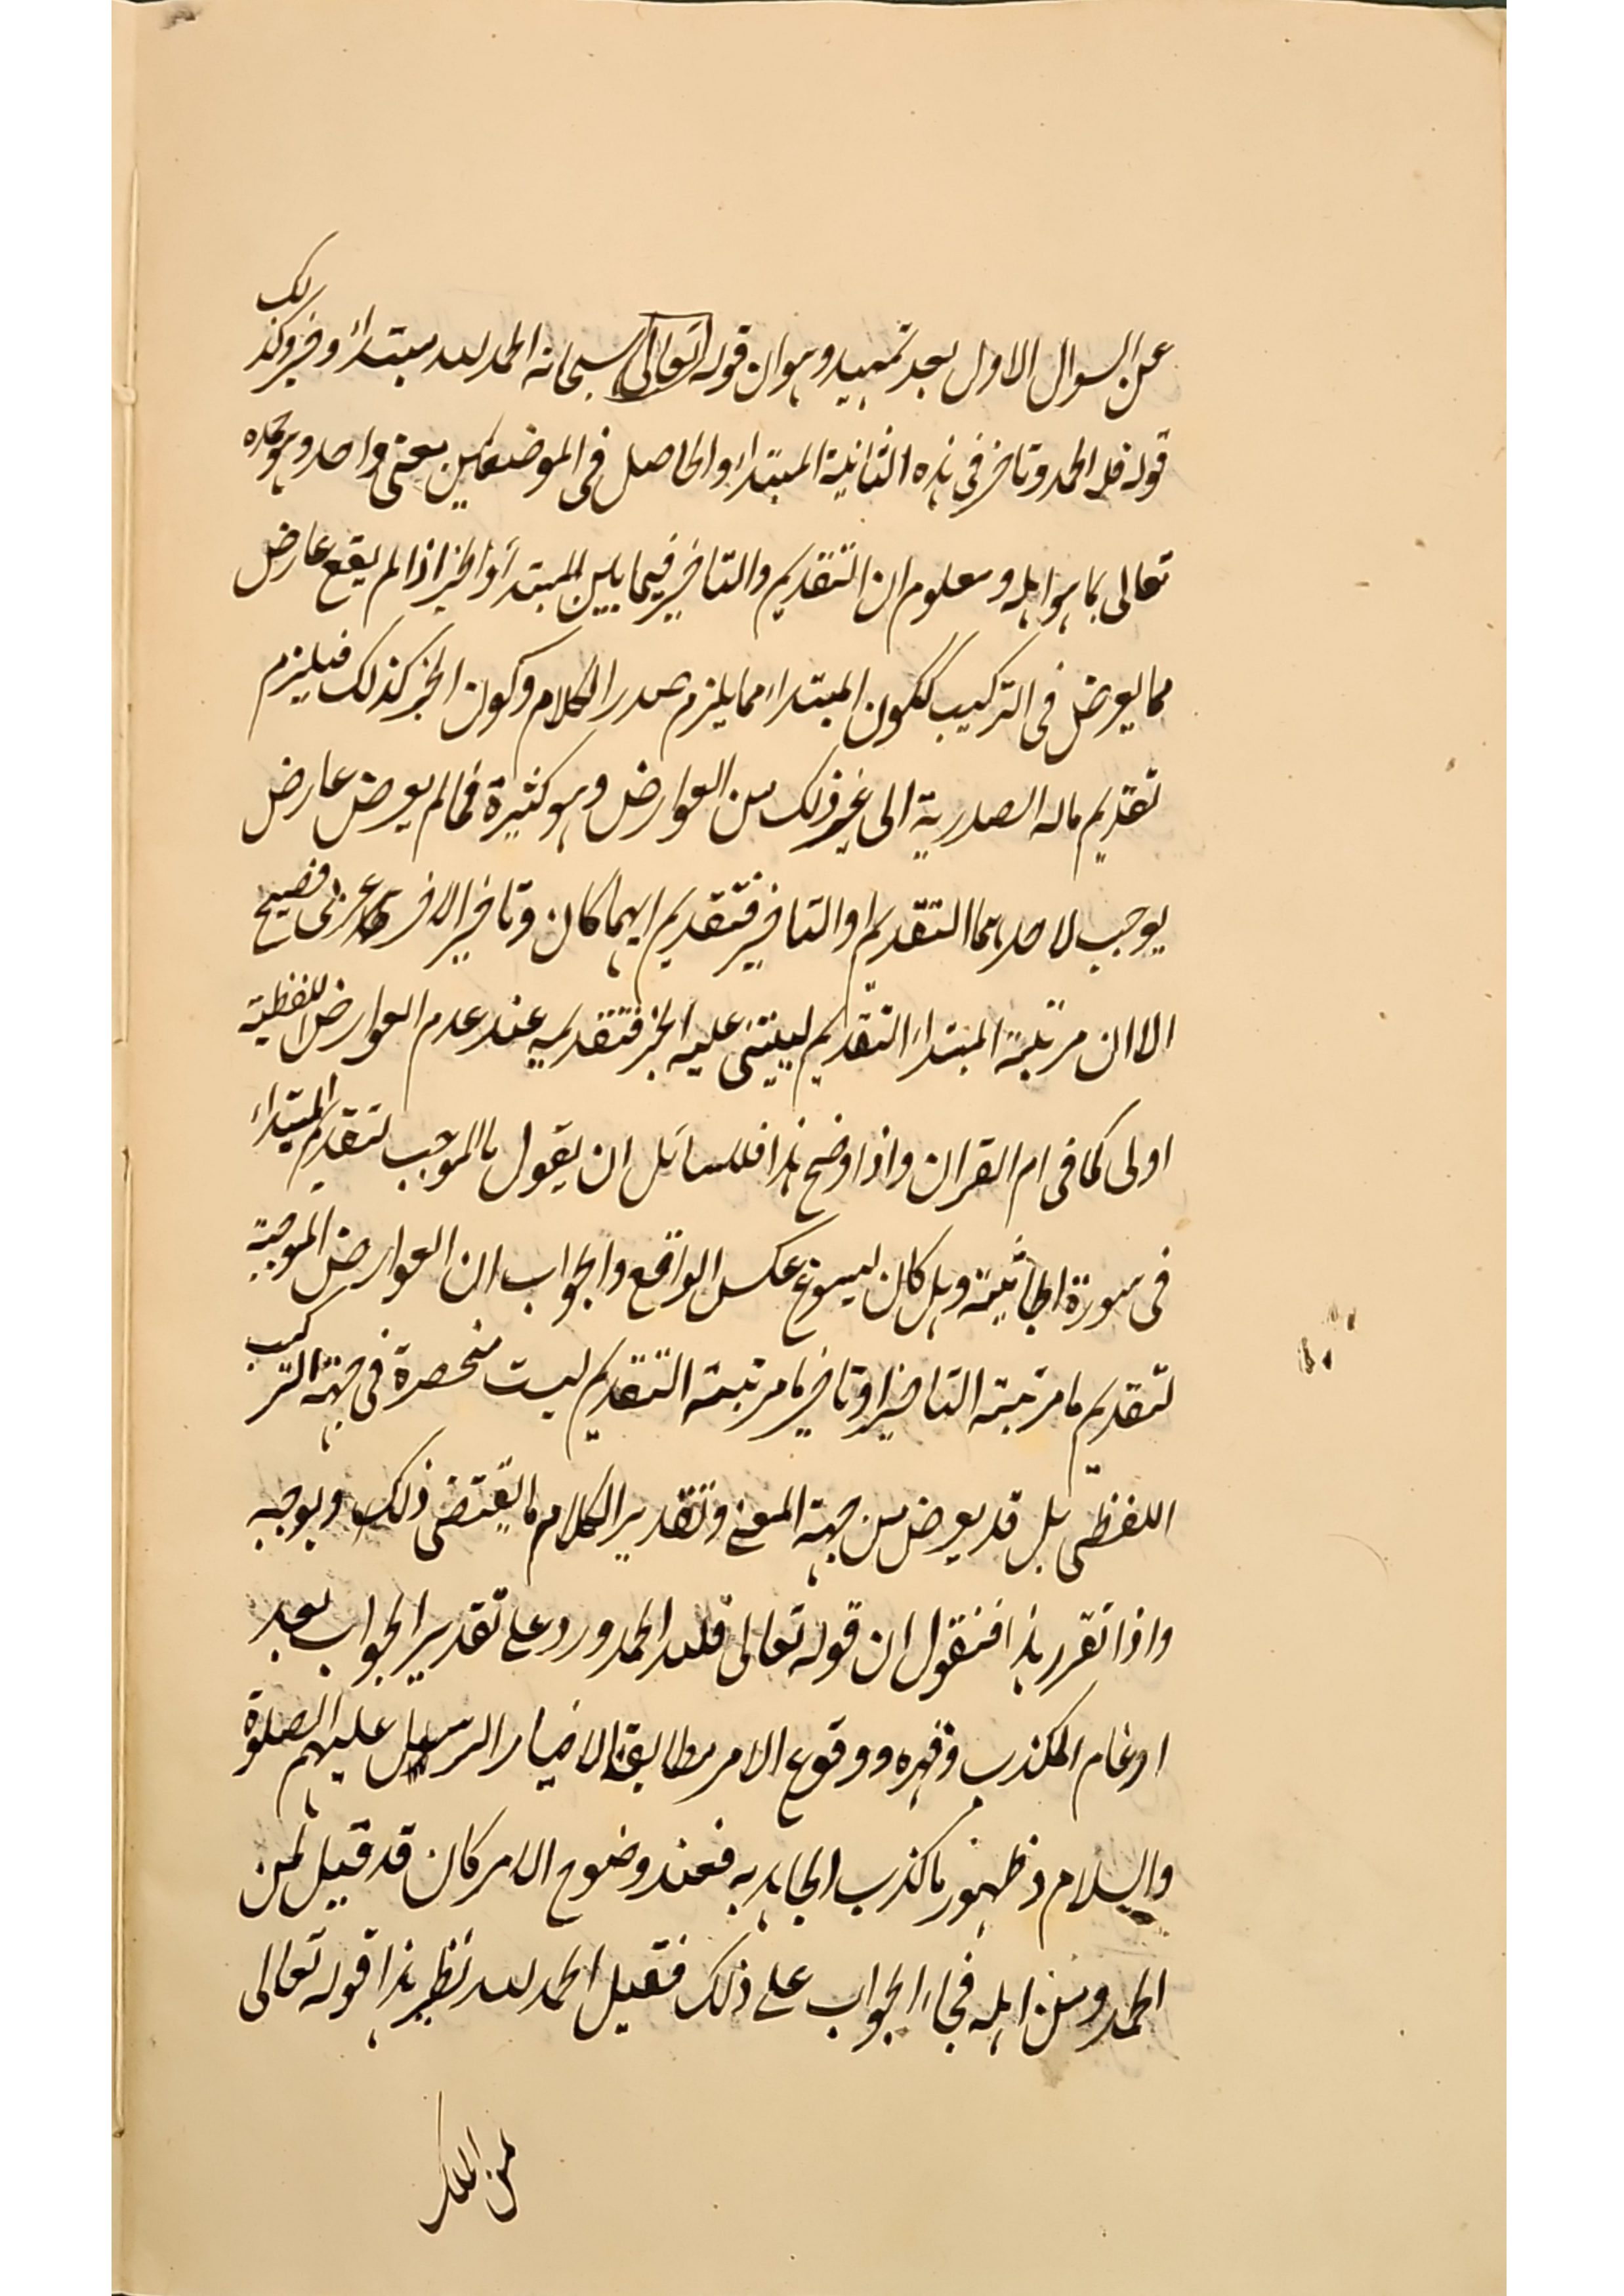 عن السوال الاول بعد تمهيد وهو ان قوله تعالى سبحانه الحمد لله مبتداء وخبر وكذلك
قوله فلله الحمد وتاخر في هذه الثانية المبتداء والحاصل في الموضعين معنى واحد وهو حمده
تعالى بما هو اهله ومعلوم ان التقديم والتاخير فيما بين المبتدأ والخبر اذا لم يقع عارض
مما يعرض في التركيب ككون المبتداء مما يلزم صدر الكلام وكون الخبر كذلك فيلزم
تقديم ماله الصدرية الى غير ذلك من العوارض وهو كثيرة فمالم يعرض عارض
يوجب لاحدهما التقديم او التاخير فتقديم ايهما كان وتاخير الاخر عربي فصيح
الا ان مرتبة المبتداء التقديم ليبتنى عليه الخبر فتقديمه عند عدم العوارض اللفظية
اولى كما في ام القران واذا وضح هذا فللسائل ان يقول ما الموجب لتقديم المبتداء
في سورة الجاثية وهل كان ليسوغ عكس الواقع والجواب ان العوارض الموجبة
لتقديم ما مرتبته التاخير او تاخير ما مرتبته التقديم ليست منحصرة في جهة التركيب
اللفظى بل قد يعرض من جهة المعنى وتقدير الكلام ما يقتضى ذلك ويوجبه
واذا تقرر هذا فنقول ان قوله تعالى فلله الحمد ورد على تقدير الجواب بعد
ارغام المكذب وقهره ووقوع الامر مطابقا لاخبار الرسل عليهم الصلوة
والسلام وظهور ما كذب الجاحد به فعند وضوح الامر كان قد قيل لمن
الحمد ومن اهله فجاء الجواب على ذلك فقيل الحمد لله نظير هذا قوله تعالى
لمن الملك